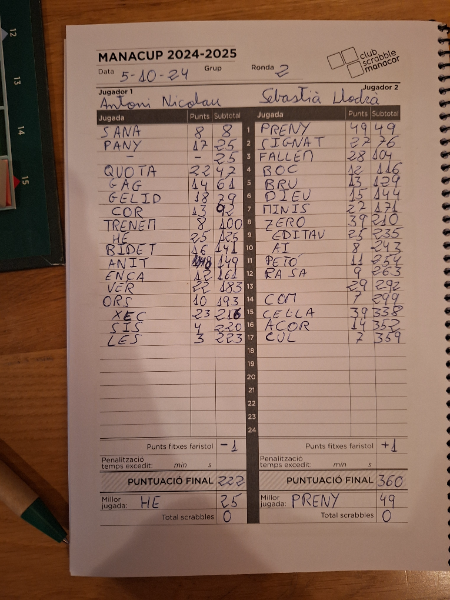 MANACUP 2024-2025
Data 5-10-24 Grup Ronda 2
club scrabble manacor
Jugador 1 Jugador 2
Antoni Nicolau Sebastià Llodrà
Jugada Punts Subtotal Jugada Punts Subtotal
SANA 8 8 1 PRENY 49 49
PANY 17 25 2 SIGNAT 27 76
- - 25 3 FALLEN 28 104
QUOTA 22 47 4 BOC 12 116
GAG 14 61 5 BRU 13 129
GELID 18 79 6 DIEU 15 144
COR 13 92 7 MINIS 27 171
TRENEM 8 100 8 ZERO 39 210
HE 25 125 9 EDITAU 25 235
BIDET 16 141 10 AI 8 243
ANIT 8 149 11 PETO 11 254
ENCA 12 161 12 RASA 9 263
VER 22 183 13 29 292
ORS 10 193 14 COM 7 299
XEC 23 216 15 CELLA 39 338
SIS 4 220 16 ACOR 14 352
LES 3 223 17 CUL 7 359
18
19
20
21
22
23
24
Punts fitxes faristol -1 +1
Penalització temps excedit: min s Penalització temps excedit: min s
PUNTUACIÓ FINAL 222 PUNTUACIÓ FINAL 360
Millor jugada: HE 25 Millor jugada: PRENY 49
Total scrabbles 0 Total scrabbles 0
12
13
14
15